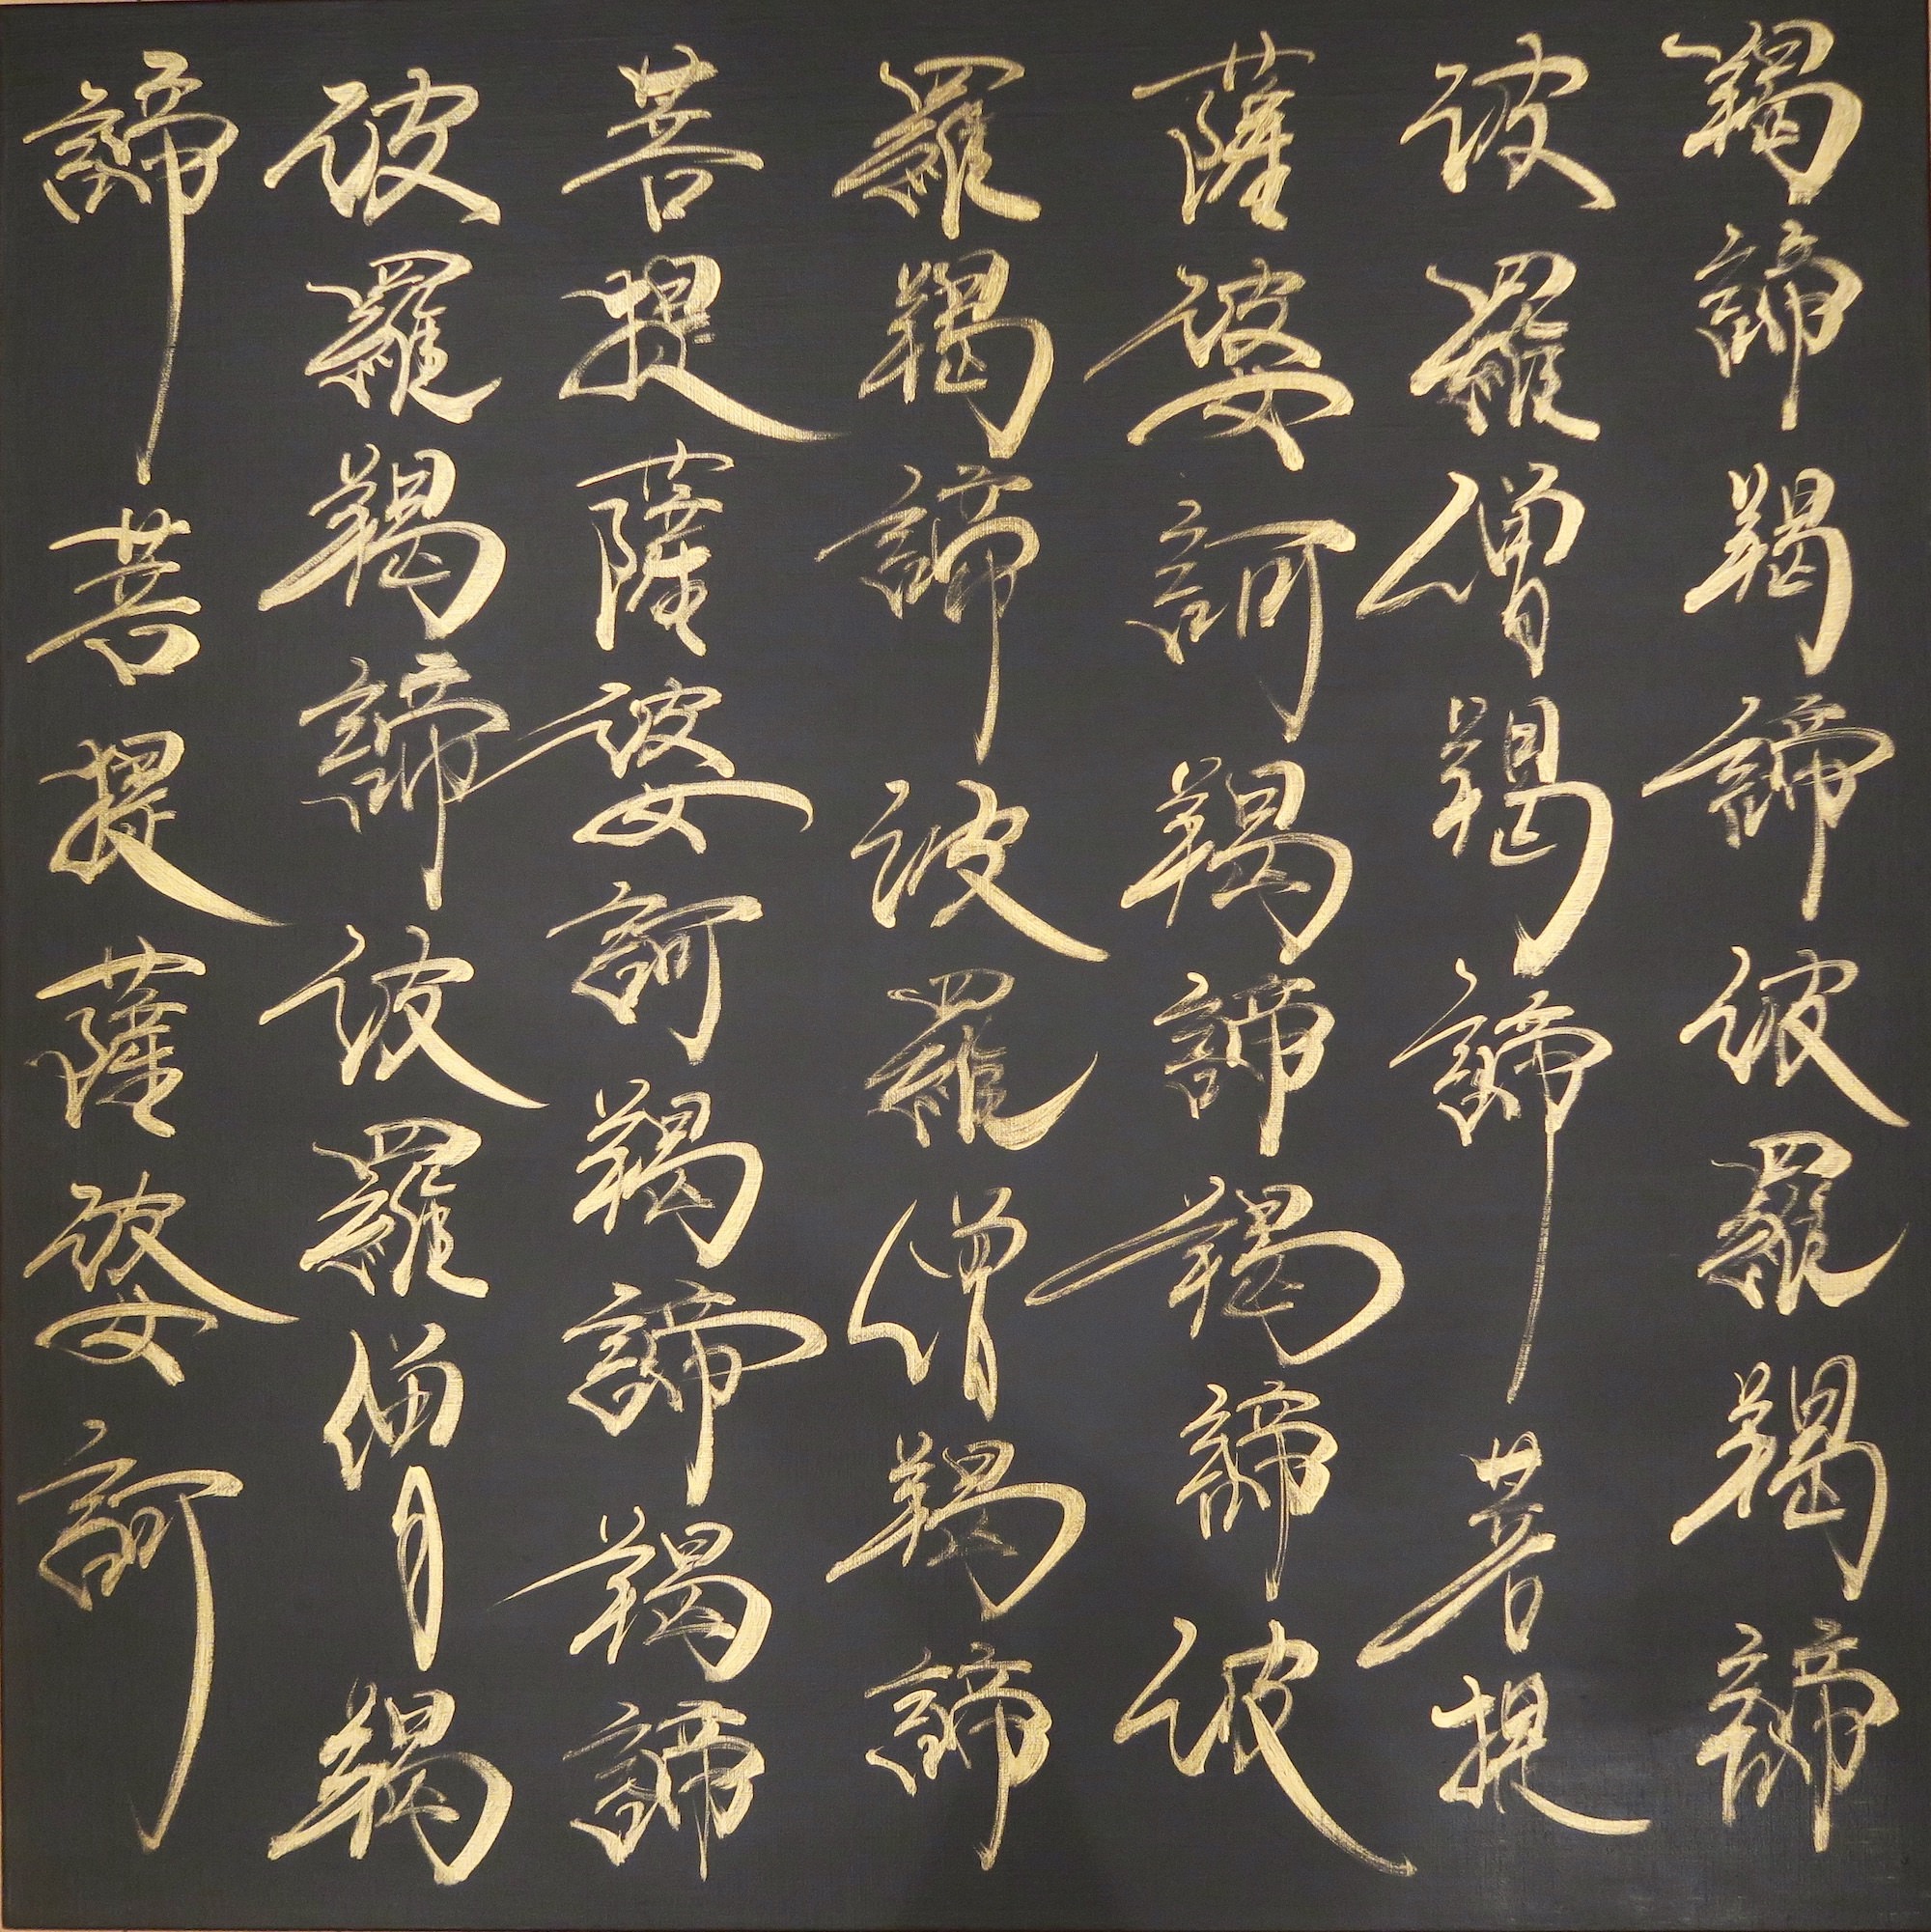 羯諦羯諦波羅羯諦
波羅僧羯諦菩提
薩婆訶羯諦羯諦波
羅羯諦波羅僧羯諦
菩提薩婆訶羯諦羯諦
波羅羯諦波羅僧羯
諦菩提薩婆訶